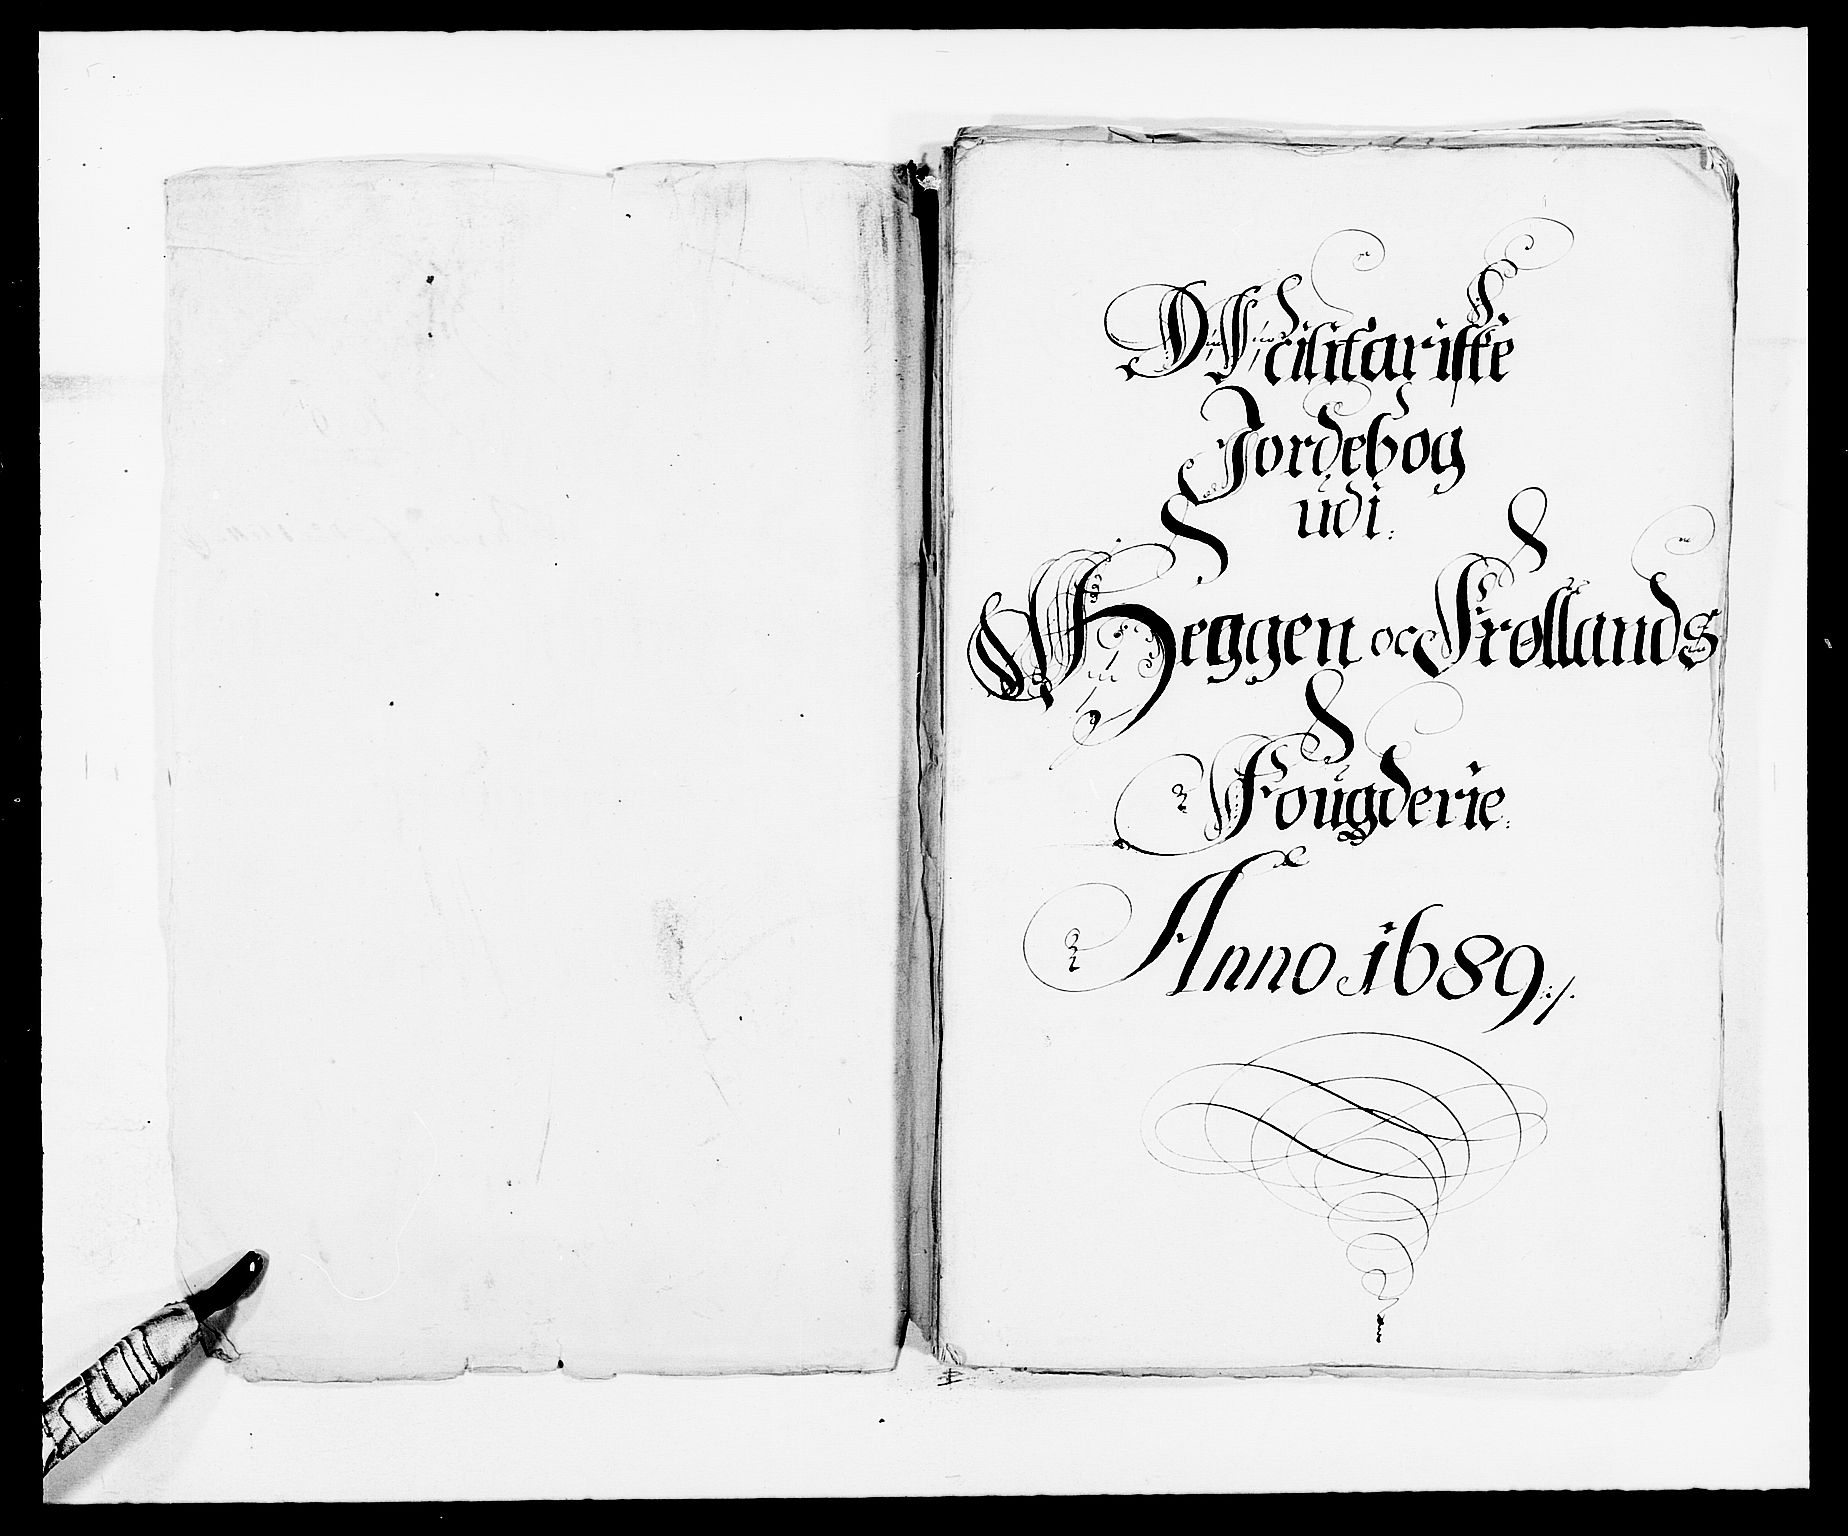 Militariske
Jordebog
udi
Heggen oc Frøllands
Fougderie
Anno 1689